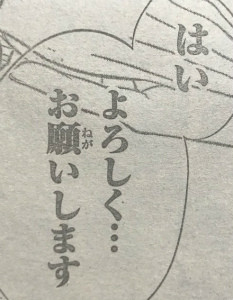 はい
よろしく…
お願いします